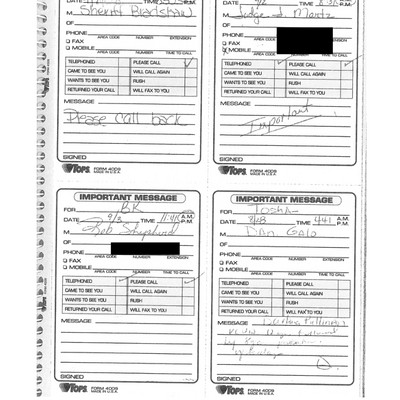 DATE TIME P.M.
M Sherriff Bradshaw
OF
PHONE
FAX
MOBILE
AREA CODE NUMBER EXTENSION
AREA CODE NUMBER TIME TO CALL
TELEPHONED PLEASE CALL ✓
CAME TO SEE YOU WILL CALL AGAIN
WANTS TO SEE YOU RUSH
RETURNED YOUR CALL WILL FAX TO YOU
MESSAGE
Please call back
SIGNED
TOPS FORM 4009
MADE IN U.S.A.
DATE TIME P.M.
M Judge J. Martz
OF
PHONE
FAX
MOBILE
AREA CODE NUMBER EXTENSION
AREA CODE NUMBER TIME TO CALL
TELEPHONED ✓ PLEASE CALL ✓
CAME TO SEE YOU WILL CALL AGAIN
WANTS TO SEE YOU RUSH
RETURNED YOUR CALL WILL FAX TO YOU
MESSAGE
Important
SIGNED
TOPS FORM 4009
MADE IN U.S.A.
IMPORTANT MESSAGE
FOR BK
DATE 9/3 TIME A.M. P.M.
M Bob
OF
PHONE
FAX
MOBILE
AREA CODE NUMBER EXTENSION
AREA CODE NUMBER TIME TO CALL
TELEPHONED ✓ PLEASE CALL ✓
CAME TO SEE YOU WILL CALL AGAIN
WANTS TO SEE YOU RUSH
RETURNED YOUR CALL WILL FAX TO YOU
MESSAGE
SIGNED
TOPS FORM 4009
MADE IN U.S.A.
IMPORTANT MESSAGE
FOR Tosha
DATE TIME 4:41 A.M. P.M.
M Dan Galo
OF
PHONE
FAX
MOBILE
AREA CODE NUMBER EXTENSION
AREA CODE NUMBER TIME TO CALL
TELEPHONED PLEASE CALL
CAME TO SEE YOU WILL CALL AGAIN
WANTS TO SEE YOU RUSH
RETURNED YOUR CALL WILL FAX TO YOU
MESSAGE
by
SIGNED
TOPS FORM 4009
MADE IN U.S.A.